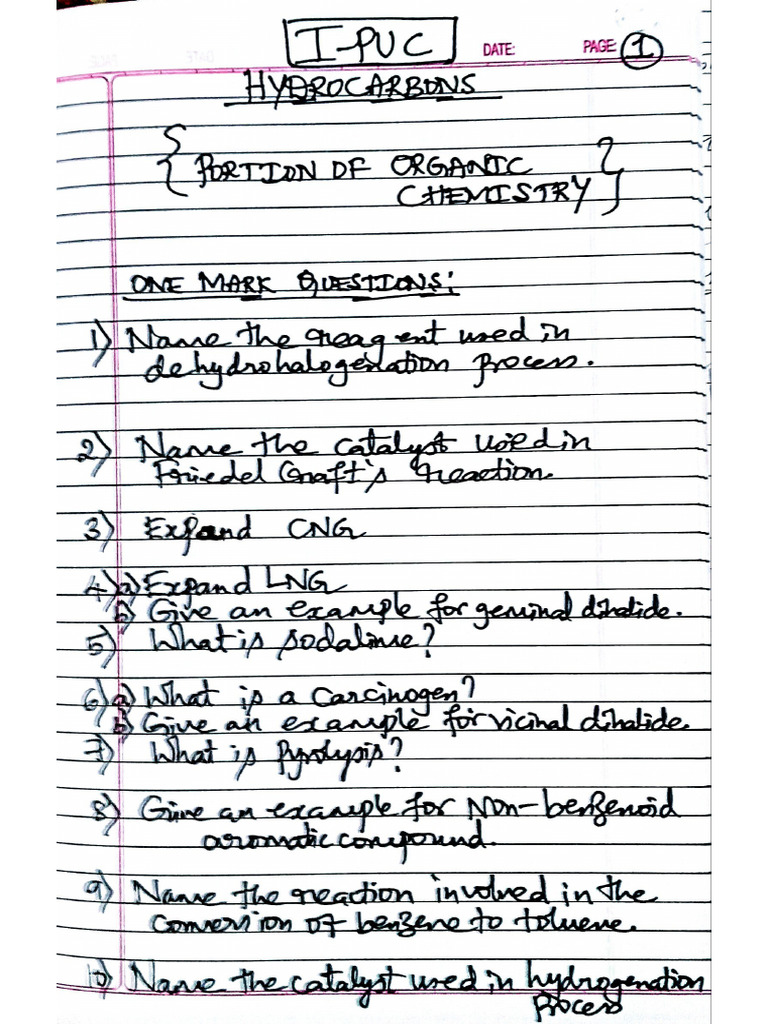 I-PUC
DATE: PAGE: 1
HYDROCARBONS
{ PORTION OF ORGANIC
CHEMISTRY }
ONE MARK QUESTIONS:
1) Name the reagent used in
dehydrohalogenation process.
2) Name the catalyst used in
Friedel Craft's reaction.
3) Expand CNG
4) a) Expand LNG
b) Give an example for geminal dihalide.
5) What is sodalime?
6) a) What is a carcinogen?
b) Give an example for vicinal dihalide.
7) What is Pyrolysis?
8) Give an example for Non-benzenoid
aromatic compound.
9) Name the reaction involved in the
conversion of benzene to toluene.
10) Name the catalyst used in hydrogenation
process